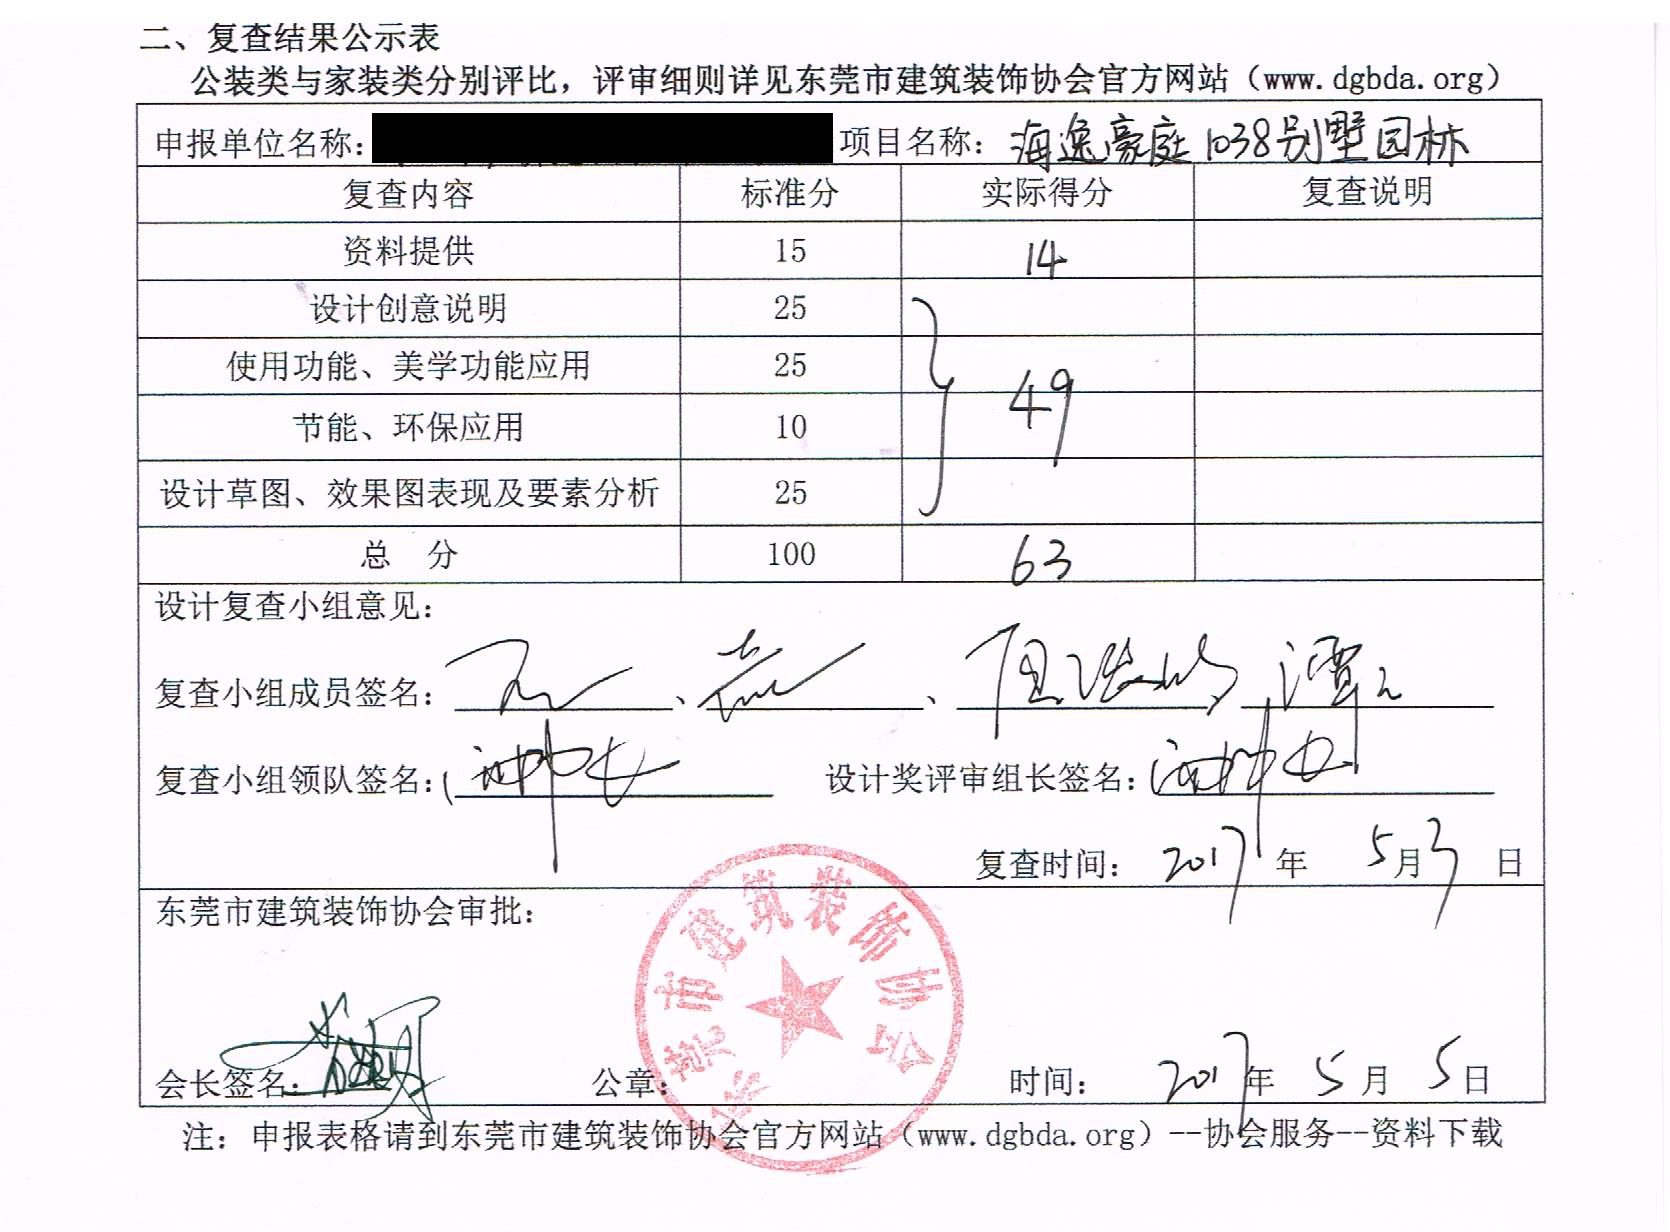 二、复查结果公示表
公装类与家装类分别评比，评审细则详见东莞市建筑装饰协会官方网站（www.dgbda.org）
申报单位名称： 项目名称：海逸豪庭1038别墅园林
复查内容 标准分 实际得分 复查说明
资料提供 15 14
设计创意说明 25
使用功能、美学功能应用 25
49
节能、环保应用 10
设计草图、效果图表现及要素分析 25
总 分 100 63
设计复查小组意见：
复查小组成员签名： 、 、 、
复查小组领队签名： 设计奖评审组长签名：
复查时间： 2017年 5月3日
东莞市建筑装饰协会审批：
东莞市建筑装饰协会
会长签名： 公章： 时间： 2017年 5月 5日
注：申报表格请到东莞市建筑装饰协会官方网站（www.dgbda.org）--协会服务--资料下载